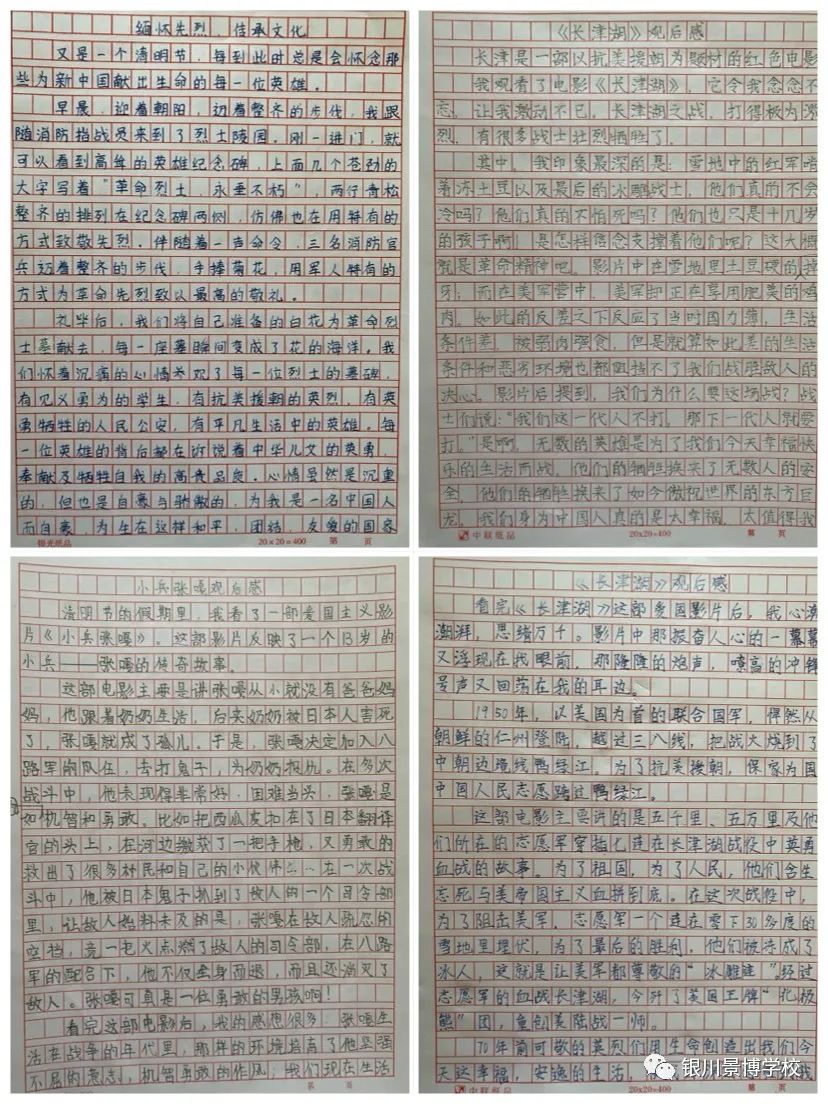 缅怀先烈，传承文化
又是一个清明节，每到此时总是会怀念那
些为新中国献出生命的每一位英雄。
早晨，迎着朝阳，迈着整齐的步伐，我跟
随消防指战员来到了烈士陵园。刚一进门，就
可以看到高耸的英雄纪念碑，上面几个苍劲的
大字写着“革命烈士，永垂不朽”，两行青松
整齐的排列在纪念碑两侧，仿佛也在用特有的
方式致敬先烈。伴随着一声命令，三名消防官
兵迈着整齐的步伐，手捧菊花，用军人特有的
方式为革命先烈致以最高的敬礼。
礼毕后，我们将自己准备的白花为革命烈
士墓献去，每一座墓瞬间变成了花的海洋。我
们怀着沉痛的心情参观了每一位烈士的墓碑，
有见义勇为的学生，有抗美援朝的英烈，有英
勇牺牲的人民公安，有平凡生活中的英雄。每
一位英雄的背后都在诉说着中华儿女的英勇，
奉献及牺牲自我的高贵品质。心情虽然是沉重
的，但也是自豪与骄傲的，为我是一名中国人
而自豪，为生在这样和平，团结，友爱的国家
锦光纸品
20×20=400
第 页
《长津湖》观后感
长津是一部以抗美援朝为题材的红色电影
我观看了电影《长津湖》，它令我念念不
忘，让我激动不已。长津湖之战，打得极为惨
烈，有很多战士壮烈牺牲了。
其中，我印象最深的是：雪地中的红军啃
着冻土豆以及最后的冰雕战士，他们真的不会
冷吗？他们真的不怕死吗？他们也只是十几岁
的孩子啊！是怎样信念支撑着他们呢？这大概
就是革命精神吧。影片中在雪地里土豆硬的掉
牙；而在美军营中，美军却正在享用肥美的鸡
肉。如此的反差之下反应了当时国力薄，生活
条件差，被弱肉强食，但是就算如此差的生活
条件和恶劣环境也都阻挡不了我们战胜敌人的
决心。影片后提到，我们为什么要这场战？战
士们说：“我们这一代人不打，那下一代人就要
打。”是啊，无数的英雄是为了我们今天幸福快
乐的生活而战，他们的牺牲换来了无数人的安
全，他们的牺牲换来了如今傲视世界的东方巨
龙。我们身为中国人真的是太幸福，太值得我
中联纸品
20×20=400
第 页
小兵张嘎观后感
清明节的假期里，我看了一部爱国主义影
片《小兵张嘎》。这部影片反映了一个13岁的
小兵——张嘎的传奇故事。
这部电影主要是讲张嘎从小就没有爸爸妈
妈，他跟着奶奶生活，后来奶奶被日本人害死
了，张嘎就成了孤儿。于是，张嘎决定加入八
路军的队伍，去打鬼子，为奶奶报仇。在多次
战斗中，他表现得非常好，困难当头，张嘎是
如机智和勇敢。比如把西瓜皮扣在了日本翻译
官的头上，在河边缴获了一把手枪，又勇敢的
救出了很多村民和自己的小伙伴……在一次战
斗中，他被日本鬼子抓到了敌人的一个司令部
里，让敌人始料未及的是，张嘎在敌人疏忽的
空档，竟一把火点燃了敌人的司令部，在八路
军的配合下，他不仅全身而退，而且还消灭了
敌人。张嘎可真是一位勇敢的男孩啊！
看完这部电影后，我的感想很多，张嘎生
活在战争的年代里，那样的环境培育了他坚强
不屈的意志，机智勇敢的作风；我们现在生活
第 页
《长津湖》观后感
看完《长津湖》这部爱国影片后，我心涛
澎湃，思绪万千。影片中那振奋人心的一幕幕
又浮现在我眼前，那隆隆的炮声，嘹高的冲锋
号声又回荡在我的耳边。
1950年，以美国为首的联合国军，悍然从
朝鲜的仁州登陆，越过三八线，把战火烧到了
中朝边境线鸭绿江。为了抗美援朝，保家为国
中国人民志愿跨过鸭绿江。
这部电影主要讲的是五千里、五万里及他
们所在的志愿军穿插七连在长津湖战役中英勇
血战的故事。为了祖国，为了人民，他们舍生
忘死与美帝国主义血拼到底。在这次战役中，
为了阻击美军，志愿军一个连在零下30多度的
雪地里埋伏，为了最后的胜利，他们被冻成了
冰人，这就是让美军都尊敬的“冰雕连”。经过
志愿军的血战长津湖，今歼了美国王牌“北极
熊”团，重创美陆战一师。
70年前可敬的英烈们用生命创造出我们今
天这幸福，安逸的生活，
中联纸品
20×20=400
银川景博学校